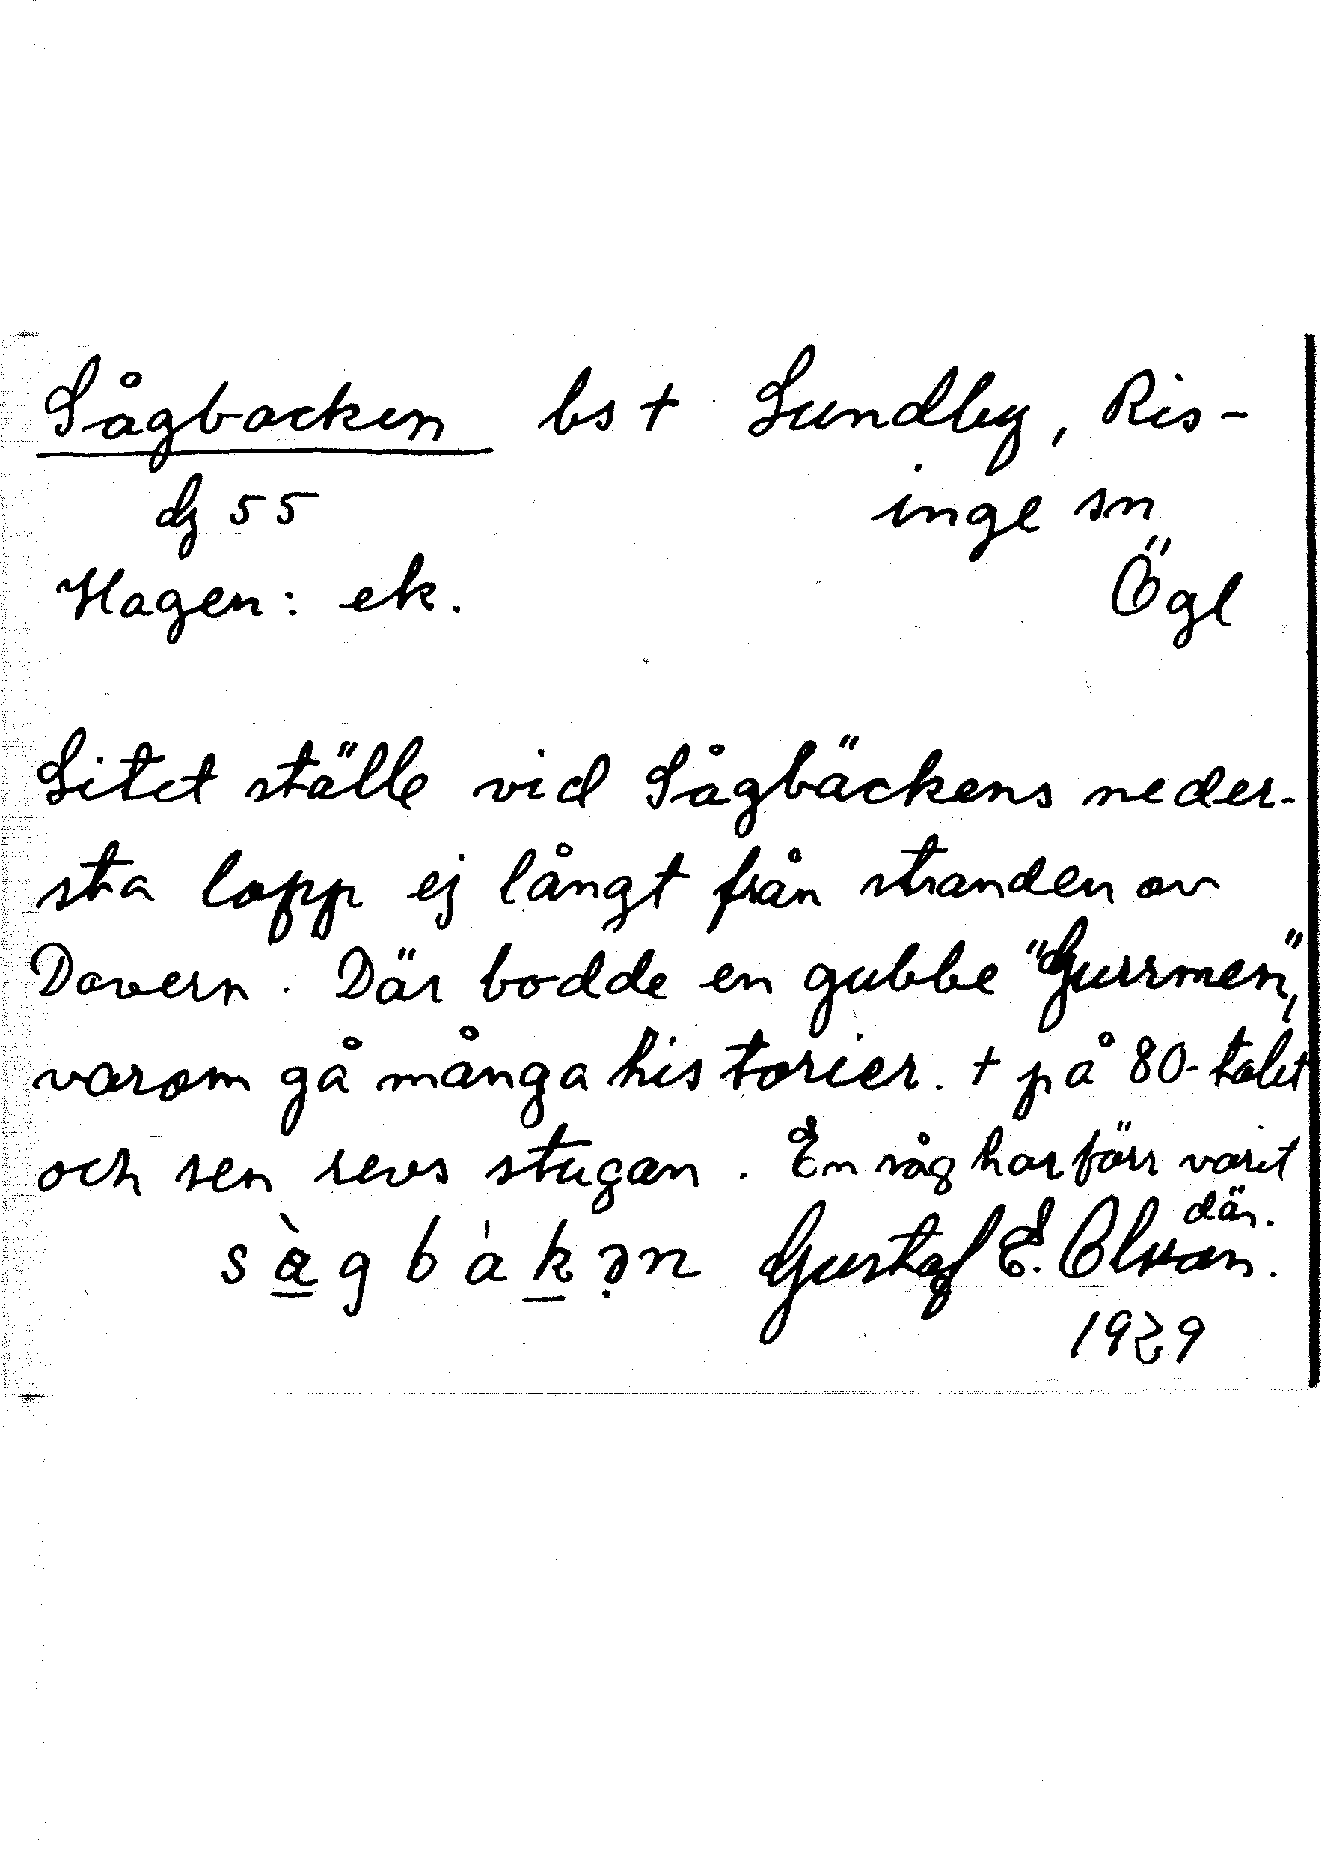 Sågbacken bs † Lundby, Ris-
dz 55 inge sn
Hagen: ek. Ögl
Litet ställe vid Sågbäckens neder-
sta lopp ej långt från stranden av
Dovern. Där bodde en gubbe "Gurrmen",
varom gå många historier. † på 80-talet
och sen revs stugan. En såg har förr varit
där.
sàgbákən Gustaf E. Olsson.
1929